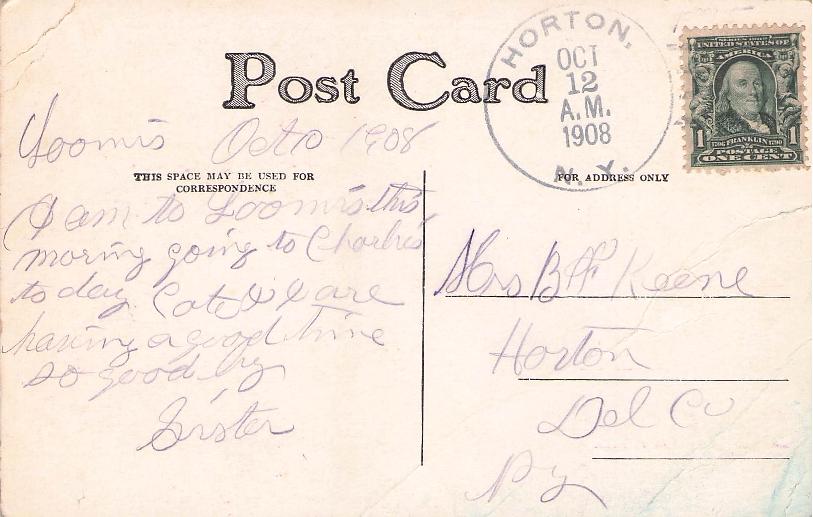 HORTON,
OCT
12
A.M.
1908
N. Y.
SERIES 1902
UNITED STATES OF
AMERICA
1 1
1706 FRANKLIN 1790
POSTAGE
ONE CENT
Post Card
Loomis Oct 1908
THIS SPACE MAY BE USED FOR
CORRESPONDENCE
I am to Loomis this
moring going to Charlies
to day are
having a good time
so good by
Sister
FOR ADDRESS ONLY
Mrs B F Keene
Horton
Del Co
Ny